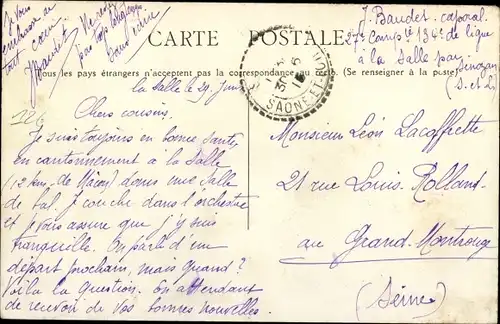 Je vous
embrasse de
tout cœur
JBaudet
CARTE POSTALE
Tous les pays étrangers n'acceptent pas la correspondance au recto. (Se renseigner à la poste)
J. Baudet caporal
27e Compie 134e de ligne
à la Salle par
Senozan
(S. et L.)
SAONE-ET-L
La Salle le 29 Juin
Chers cousins,
Je suis toujours en bonne santé,
en cantonnement à la Salle
(12 km. de Mâcon) dans une Salle
de bal. Je couche dans l'orchestre
et je vous assure que j'y suis
tranquille. On parle d'un
départ prochain, mais quand?
Voilà la question. En attendant
de recevoir de vos bonnes nouvelles.
Monsieur Léon Lacoffrette
21 rue Louis Rolland
au Grand-Montrouge
(Seine)